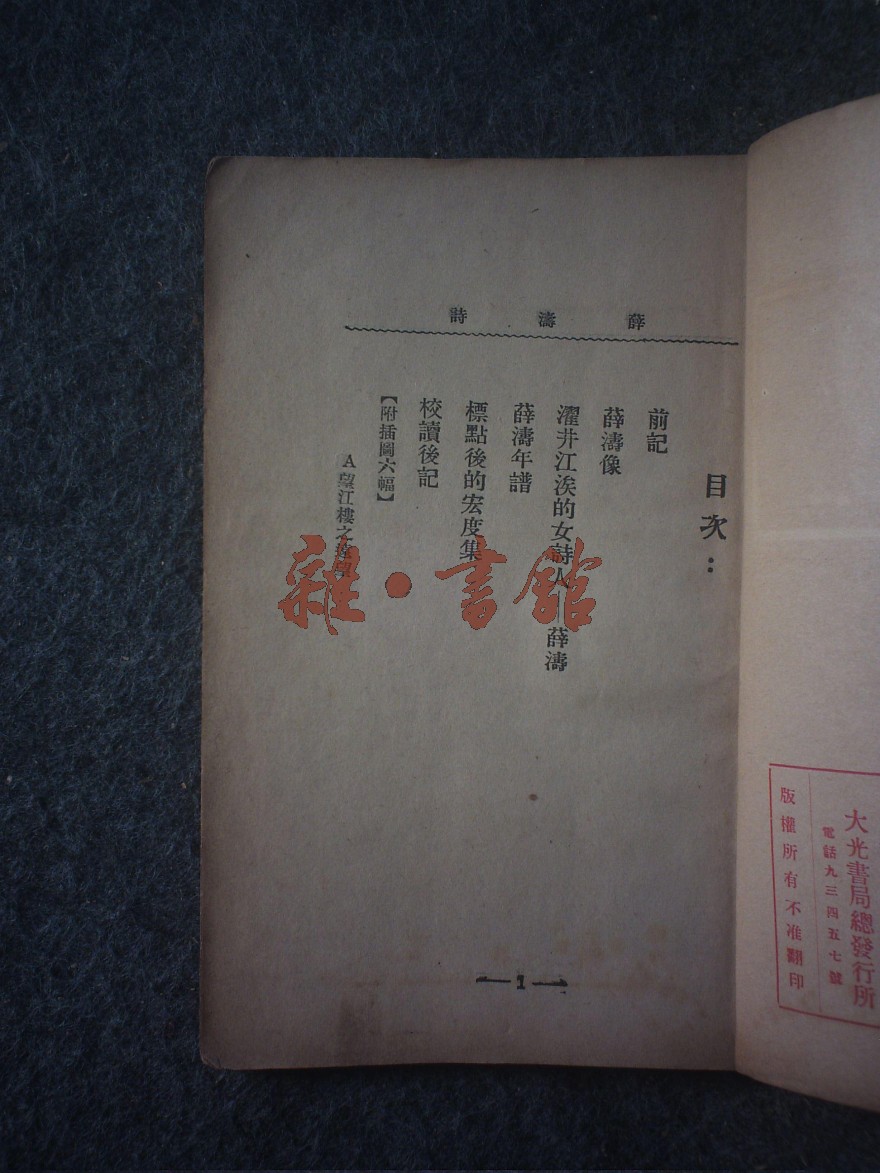 薛濤詩
目次：
前記
薛濤像
濯井江涘的女詩人——薛濤
薛濤年譜
標點後的宏度集
校讀後記
【附插圖六幅】
A望江樓之遠望
—1—
大光書局總發行所
電話九三四五七號
版權所有不准翻印
雜·書館